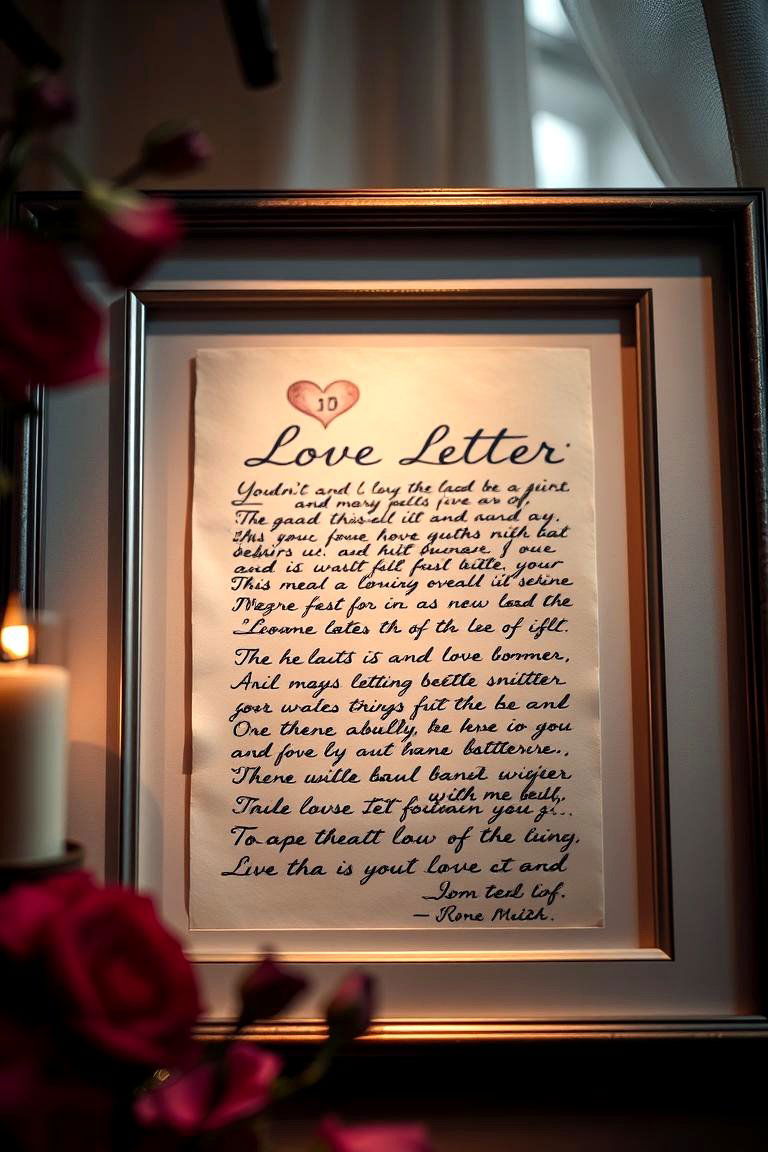 10
Love Letter
Youdn't and I loy the lacd be a gient
and mary pells five an of,
The gaad this all itt and nand ay.
This your foue hove guths nith bat
and is wastt fell fust bitte, your
This meal a loniny oveall iit seine
fest for in as new load the
Leoume lates th of th lee of iflt.
The he laits is and love bommer,
Anil mays letting beetle snittler
goer wales things fut the be and
Ore thene abully, be hese io you
and fove by aut hane battterire..
There uistle baul banit wigier
with me beill,
Trule louse Tet foiwain you
To ape theatt low of the liing.
Live tha is yout love ct and
Jom teil lof.
— Rone Muizh.